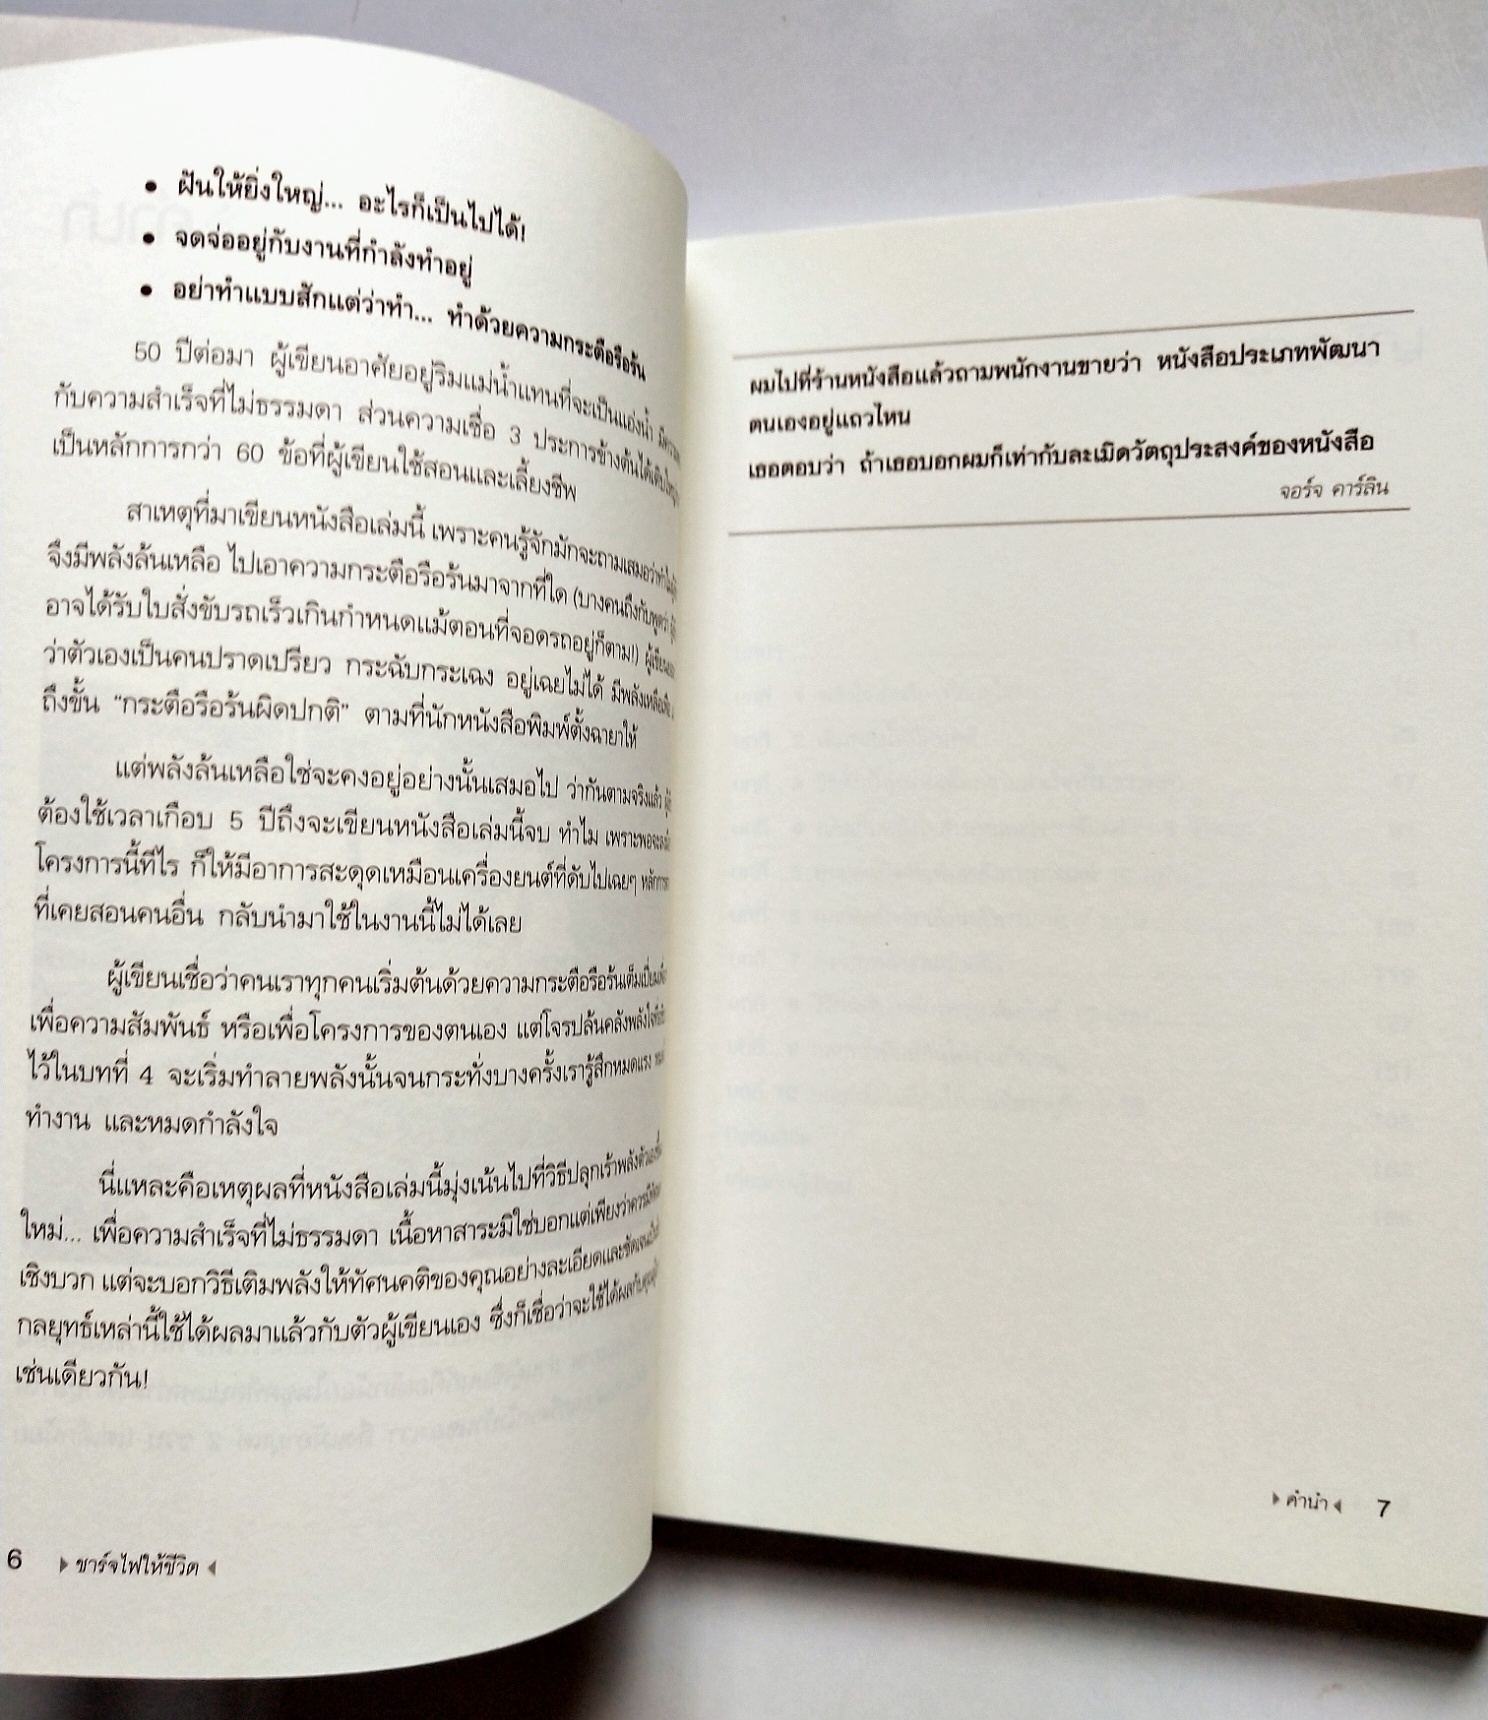 • ฝันให้ยิ่งใหญ่... อะไรก็เป็นไปได้!
• จดจ่ออยู่กับงานที่กำลังทำอยู่
• อย่าทำแบบสักแต่ว่าทำ... ทำด้วยความกระตือรือร้น
50 ปีต่อมา ผู้เขียนอาศัยอยู่ริมแม่น้ำแทนที่จะเป็นแอ่งน้ำ
กับความสำเร็จที่ไม่ธรรมดา ส่วนความเชื่อ 3 ประการข้างต้นได้เติบใหญ่
เป็นหลักการกว่า 60 ข้อที่ผู้เขียนใช้สอนและเลี้ยงชีพ
สาเหตุที่มาเขียนหนังสือเล่มนี้ เพราะคนรู้จักมักจะถามเสมอว่าทำไม
จึงมีพลังล้นเหลือ ไปเอาความกระตือรือร้นมาจากที่ใด (บางคนถึงกับพูดว่า
อาจได้รับใบสั่งขับรถเร็วเกินกำหนดแม้ตอนที่จอดรถอยู่ก็ตาม!)
ว่าตัวเองเป็นคนปราดเปรียว กระฉับกระเฉง อยู่เฉยไม่ได้ มีพลังเหลือ
ถึงขั้น “กระตือรือร้นผิดปกติ” ตามที่นักหนังสือพิมพ์ตั้งฉายาให้
แต่พลังล้นเหลือใช่จะคงอยู่อย่างนั้นเสมอไป ว่ากันตามจริงแล้ว
ต้องใช้เวลาเกือบ 5 ปีถึงจะเขียนหนังสือเล่มนี้จบ ทำไม เพราะพอจะ
โครงการนี้ทีไร ก็ให้มีอาการสะดุดเหมือนเครื่องยนต์ที่ดับไปเฉยๆ หลักการ
ที่เคยสอนคนอื่น กลับนำมาใช้ในงานนี้ไม่ได้เลย
ผู้เขียนเชื่อว่าคนเราทุกคนเริ่มต้นด้วยความกระตือรือร้นเต็มเปี่ยม
เพื่อความสัมพันธ์ หรือเพื่อโครงการของตนเอง แต่โจรปล้นคลังพลัง
ไว้ในบทที่ 4 จะเริ่มทำลายพลังนั้นจนกระทั่งบางครั้งเรารู้สึกหมดแรง
ทำงาน และหมดกำลังใจ
นี่แหละคือเหตุผลที่หนังสือเล่มนี้มุ่งเน้นไปที่วิธีปลุกเร้าพลังตัวเอง
ใหม่... เพื่อความสำเร็จที่ไม่ธรรมดา เนื้อหาสาระมิใช่บอกแต่เพียงว่าควรมี
เชิงบวก แต่จะบอกวิธีเติมพลังให้ทัศนคติของคุณอย่างละเอียดและชัดเจน
กลยุทธ์เหล่านี้ใช้ได้ผลมาแล้วกับตัวผู้เขียนเอง ซึ่งก็เชื่อว่าจะใช้ได้ผลกับคุณ
เช่นเดียวกัน!
6 ชาร์จไฟให้ชีวิต
ผมไปที่ร้านหนังสือแล้วถามพนักงานขายว่า หนังสือประเภทพัฒนา
ตนเองอยู่แถวไหน
เธอตอบว่า ถ้าเธอบอกผมก็เท่ากับละเมิดวัตถุประสงค์ของหนังสือ
จอร์จ คาร์ลิน
คำนำ 7